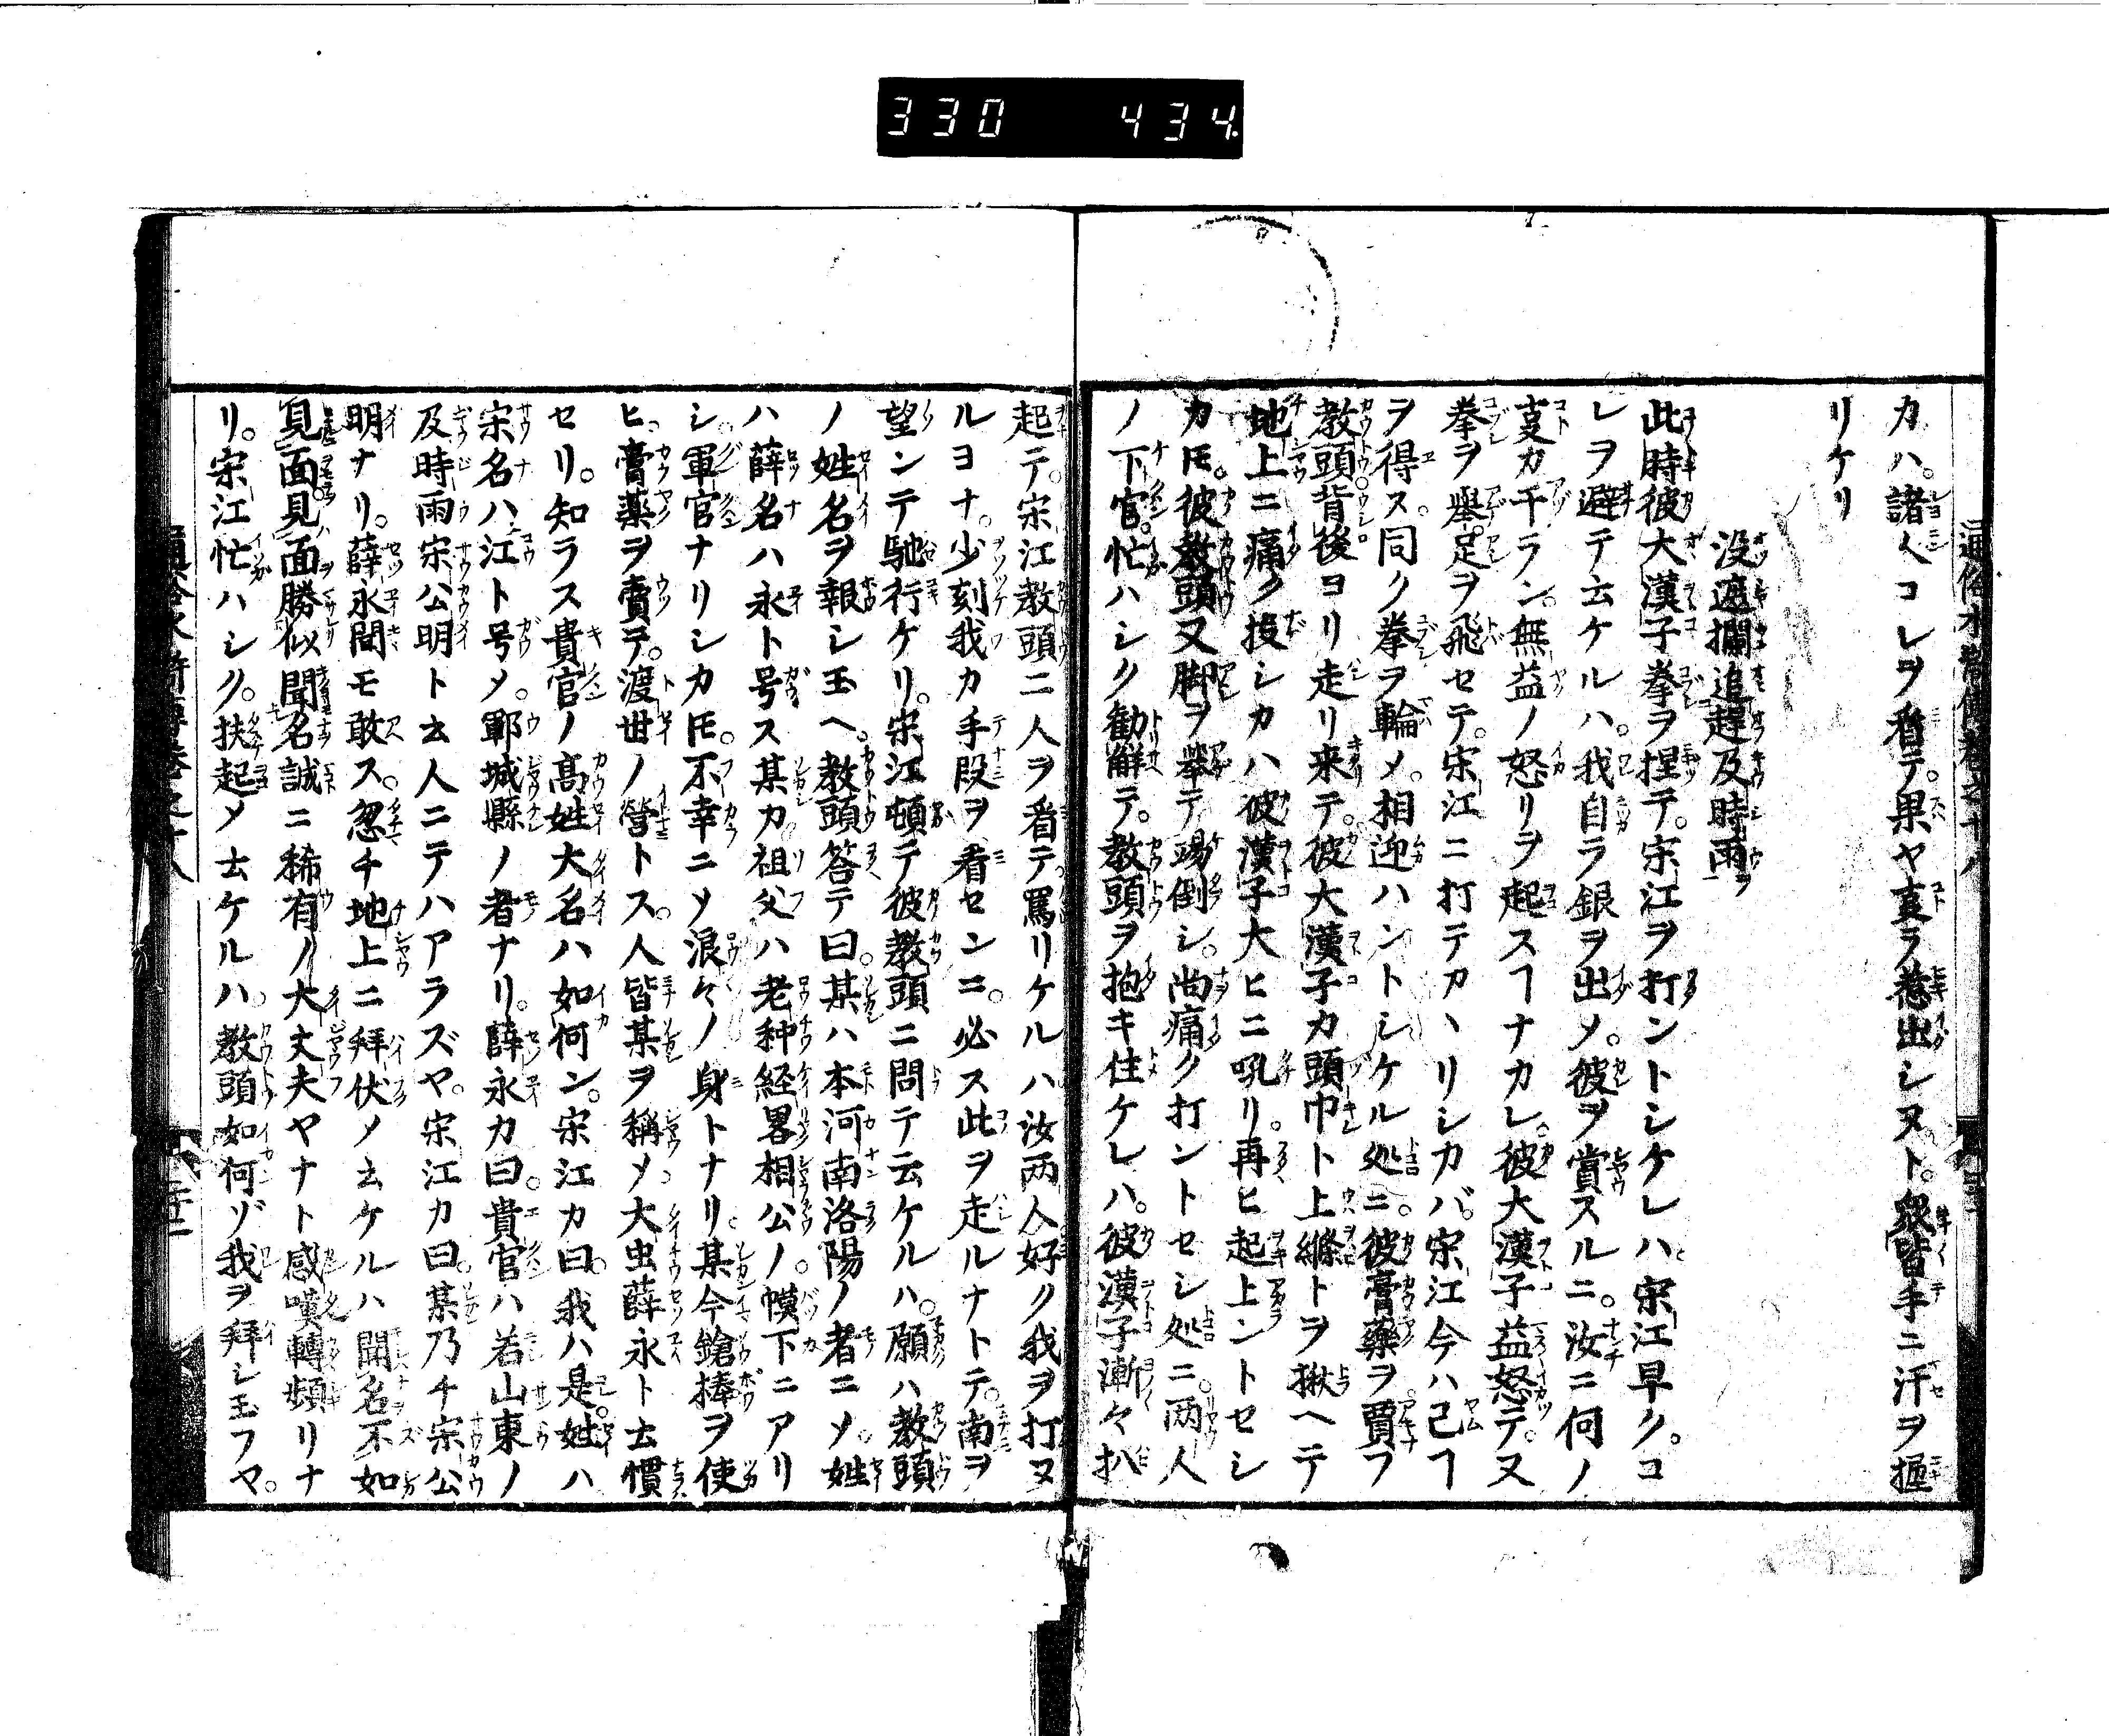 330 434
カハ。諸人コレヲ看テ。果ヤ㕝ヲ惹出シヌト。衆皆手ニ汗ヲ握
リケリ
没遮攔追趕及時雨ヲ
此時彼大漢子拳ヲ捏テ。宋江ヲ打ントシケレハ宋江早ク。コ
レヲ避テ云ケルハ。我自ラ銀ヲ出メ。彼ヲ賞スルニ。汝ニ何ノ
㕝カ干ラン。無益ノ怒リヲ起スヿナカレ。彼大漢子益怒テ。又
拳ヲ舉足ヲ飛セテ。宋江ニ打テカヽリシカバ。宋江今ハ已ヿ
ヲ得ス。同ク拳ヲ輪メ。相迎ハントシケル処ニ。彼膏藥ヲ賈フ
教頭背後ヨリ走リ来テ。彼大漢子カ頭巾ト上縧トヲ揪ヘテ
地上ニ痛ク投シカハ彼漢子大ヒニ吼リ。再ヒ起上ントセシ
カ𪜈。彼教頭又脚ヲ舉テ踢倒シ。尚痛ク打ントセシ処ニ。两人
ノ下官。忙ハシク勧觧テ。教頭ヲ抱キ住ケレハ。彼漢子漸々扒
起テ。宋江教頭二人ヲ看テ罵リケルハ汝两人好ク我ヲ打ヌ
ルヨナ。少刻我カ手段ヲ看センニ。必ス此ヲ走ルナトテ。南ヲ
望ンテ馳行ケリ。宋江頓テ彼教頭ニ問テ云ケルハ。願ハ教頭
ノ姓名ヲ報シ玉ヘ。教頭答テ曰。某ハ本河南洛陽ノ者ニメ。姓
ハ薛名ハ永ト号ス某カ祖父ハ老种経畧相公ノ。幙下ニアリ
シ。軍官ナリシカ𪜈。不幸ニメ浪々ノ身トナリ某今鎗捧ヲ使
ヒ。膏薬ヲ賣テ。渡世ノ營トス。人皆某ヲ稱メ。大虫薛永ト云慣
セリ。知ラス貴官ノ髙姓大名ハ如何ン。宋江カ曰。我ハ是。姓ハ
宋名ハ江ト号メ。鄆城縣ノ者ナリ。薛永カ曰。貴官ハ若山東ノ
及時雨宋公明ト云人ニテハアラズヤ。宋江カ曰。某乃チ宋公
明ナリ。薛永聞モ敢ス。忽チ地上ニ拜伏メ云ケルハ聞名不如
見面。見面勝似聞名誠ニ稀有ノ大丈夫ヤナト感嘆轉頻リナ
リ。宋江忙ハシク。扶起メ云ケルハ。教頭如何ゾ我ヲ拜シ玉フヤ。